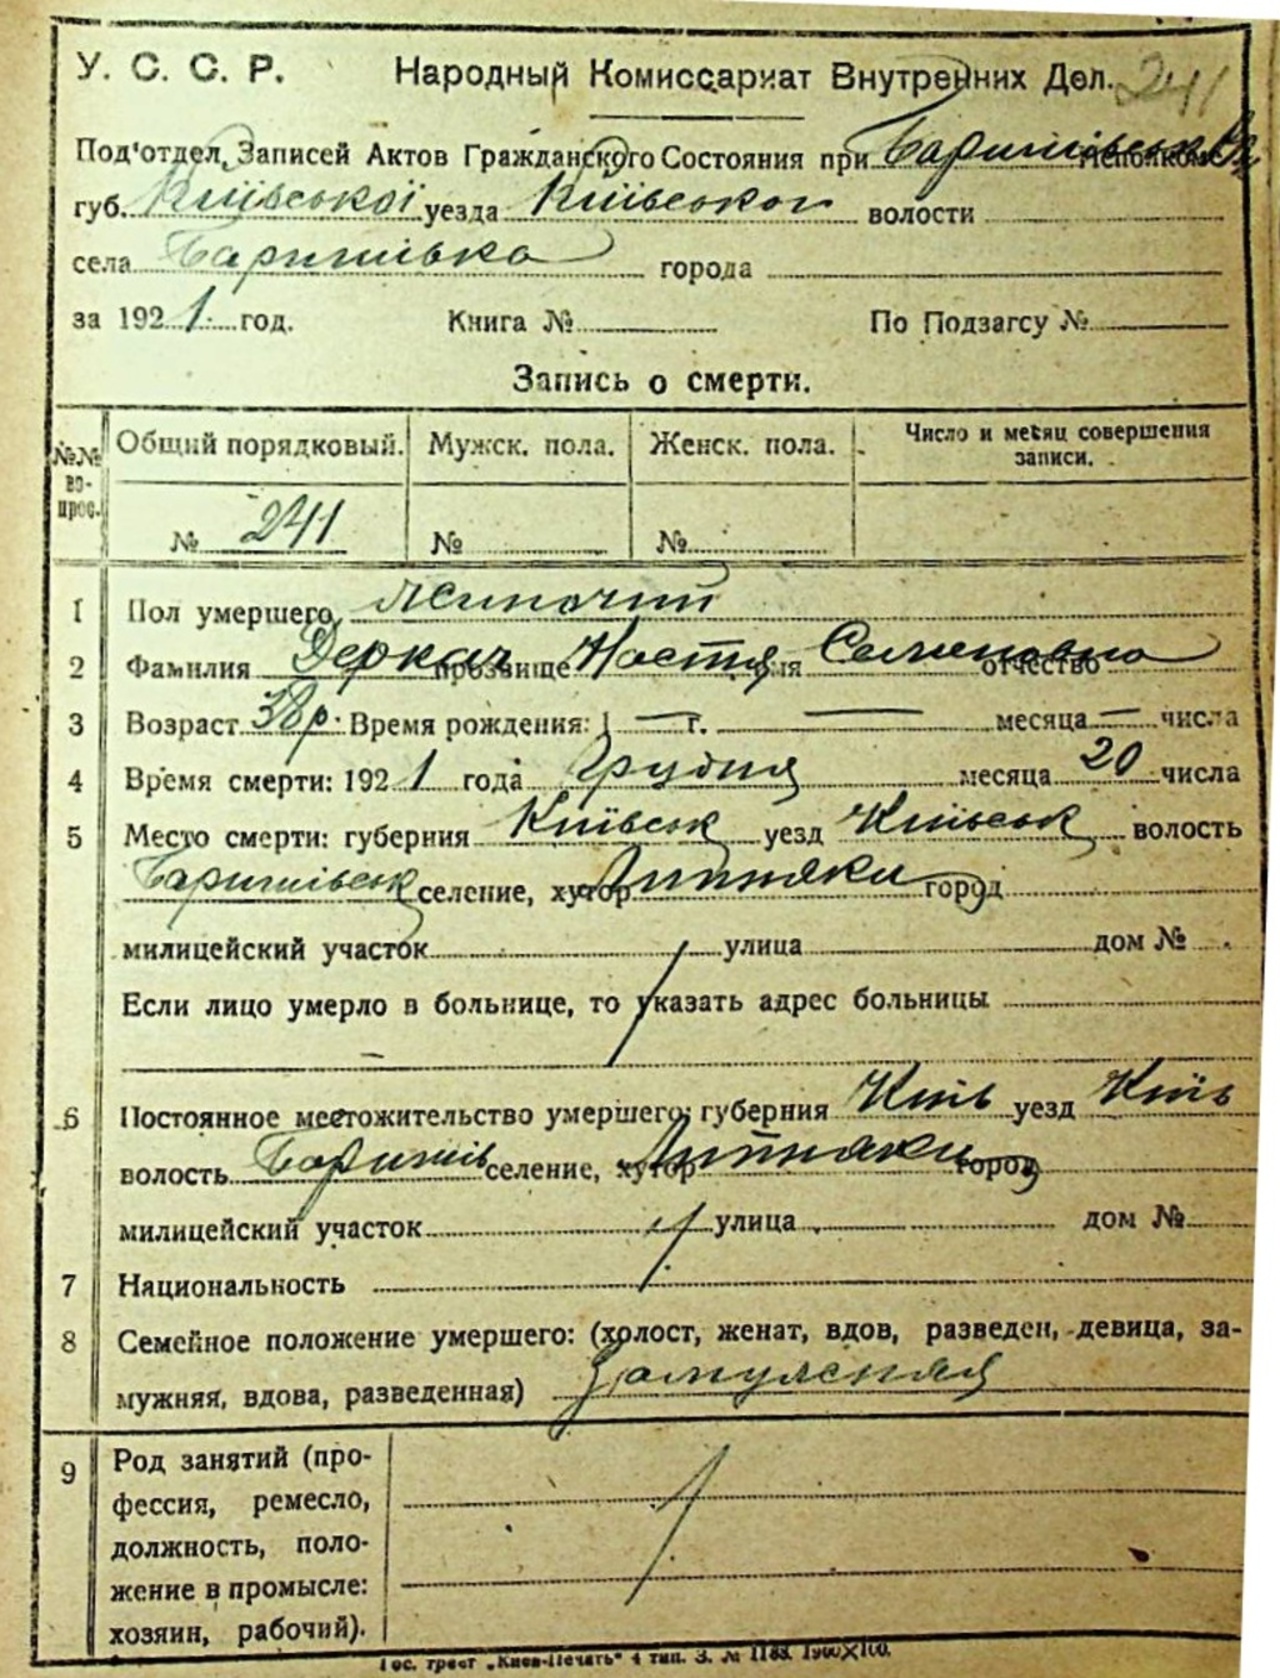 У. С. С. Р. Народный Комиссариат Внутренних Дел. 241
Под'отдел Записей Актов Гражданского Состояния при Баришівськ Исполкоме
губ. Київської уезда Київського волости
села Баришівка города
за 1921 год. Книга № По Подзагсу №
Запись о смерти.
№№ вопрос. Общий порядковый. Мужск. пола. Женск. пола. Число и месяц совершения записи.
№ 241 № №
1 Пол умершего жіночий
2 Фамилия Деркач прозвище Настя имя Семеновна отчество
3 Возраст 38 р. Время рождения: 1 — г. — месяца — числа
4 Время смерти: 1921 года Грудня месяца 20 числа
5 Место смерти: губерния Київськ уезд Київськ волость
Баришівськ селение, хутор Липняки город
милицейский участок улица дом №
Если лицо умерло в больнице, то указать адрес больницы
—
6 Постоянное местожительство умершего: губерния Київ уезд Київ
волость Баришів селение, хутор Липняки город
милицейский участок улица дом №
7 Национальность
8 Семейное положение умершего: (холост, женат, вдов, разведен, девица, за-
мужняя, вдова, разведенная) Замужняя
9 Род занятий (про-
фессия, ремесло,
должность, поло-
жение в промысле:
хозяин, рабочий).
Гос. трест „Киев-Печать" 4 тип. З. № 1183. 1900×100.